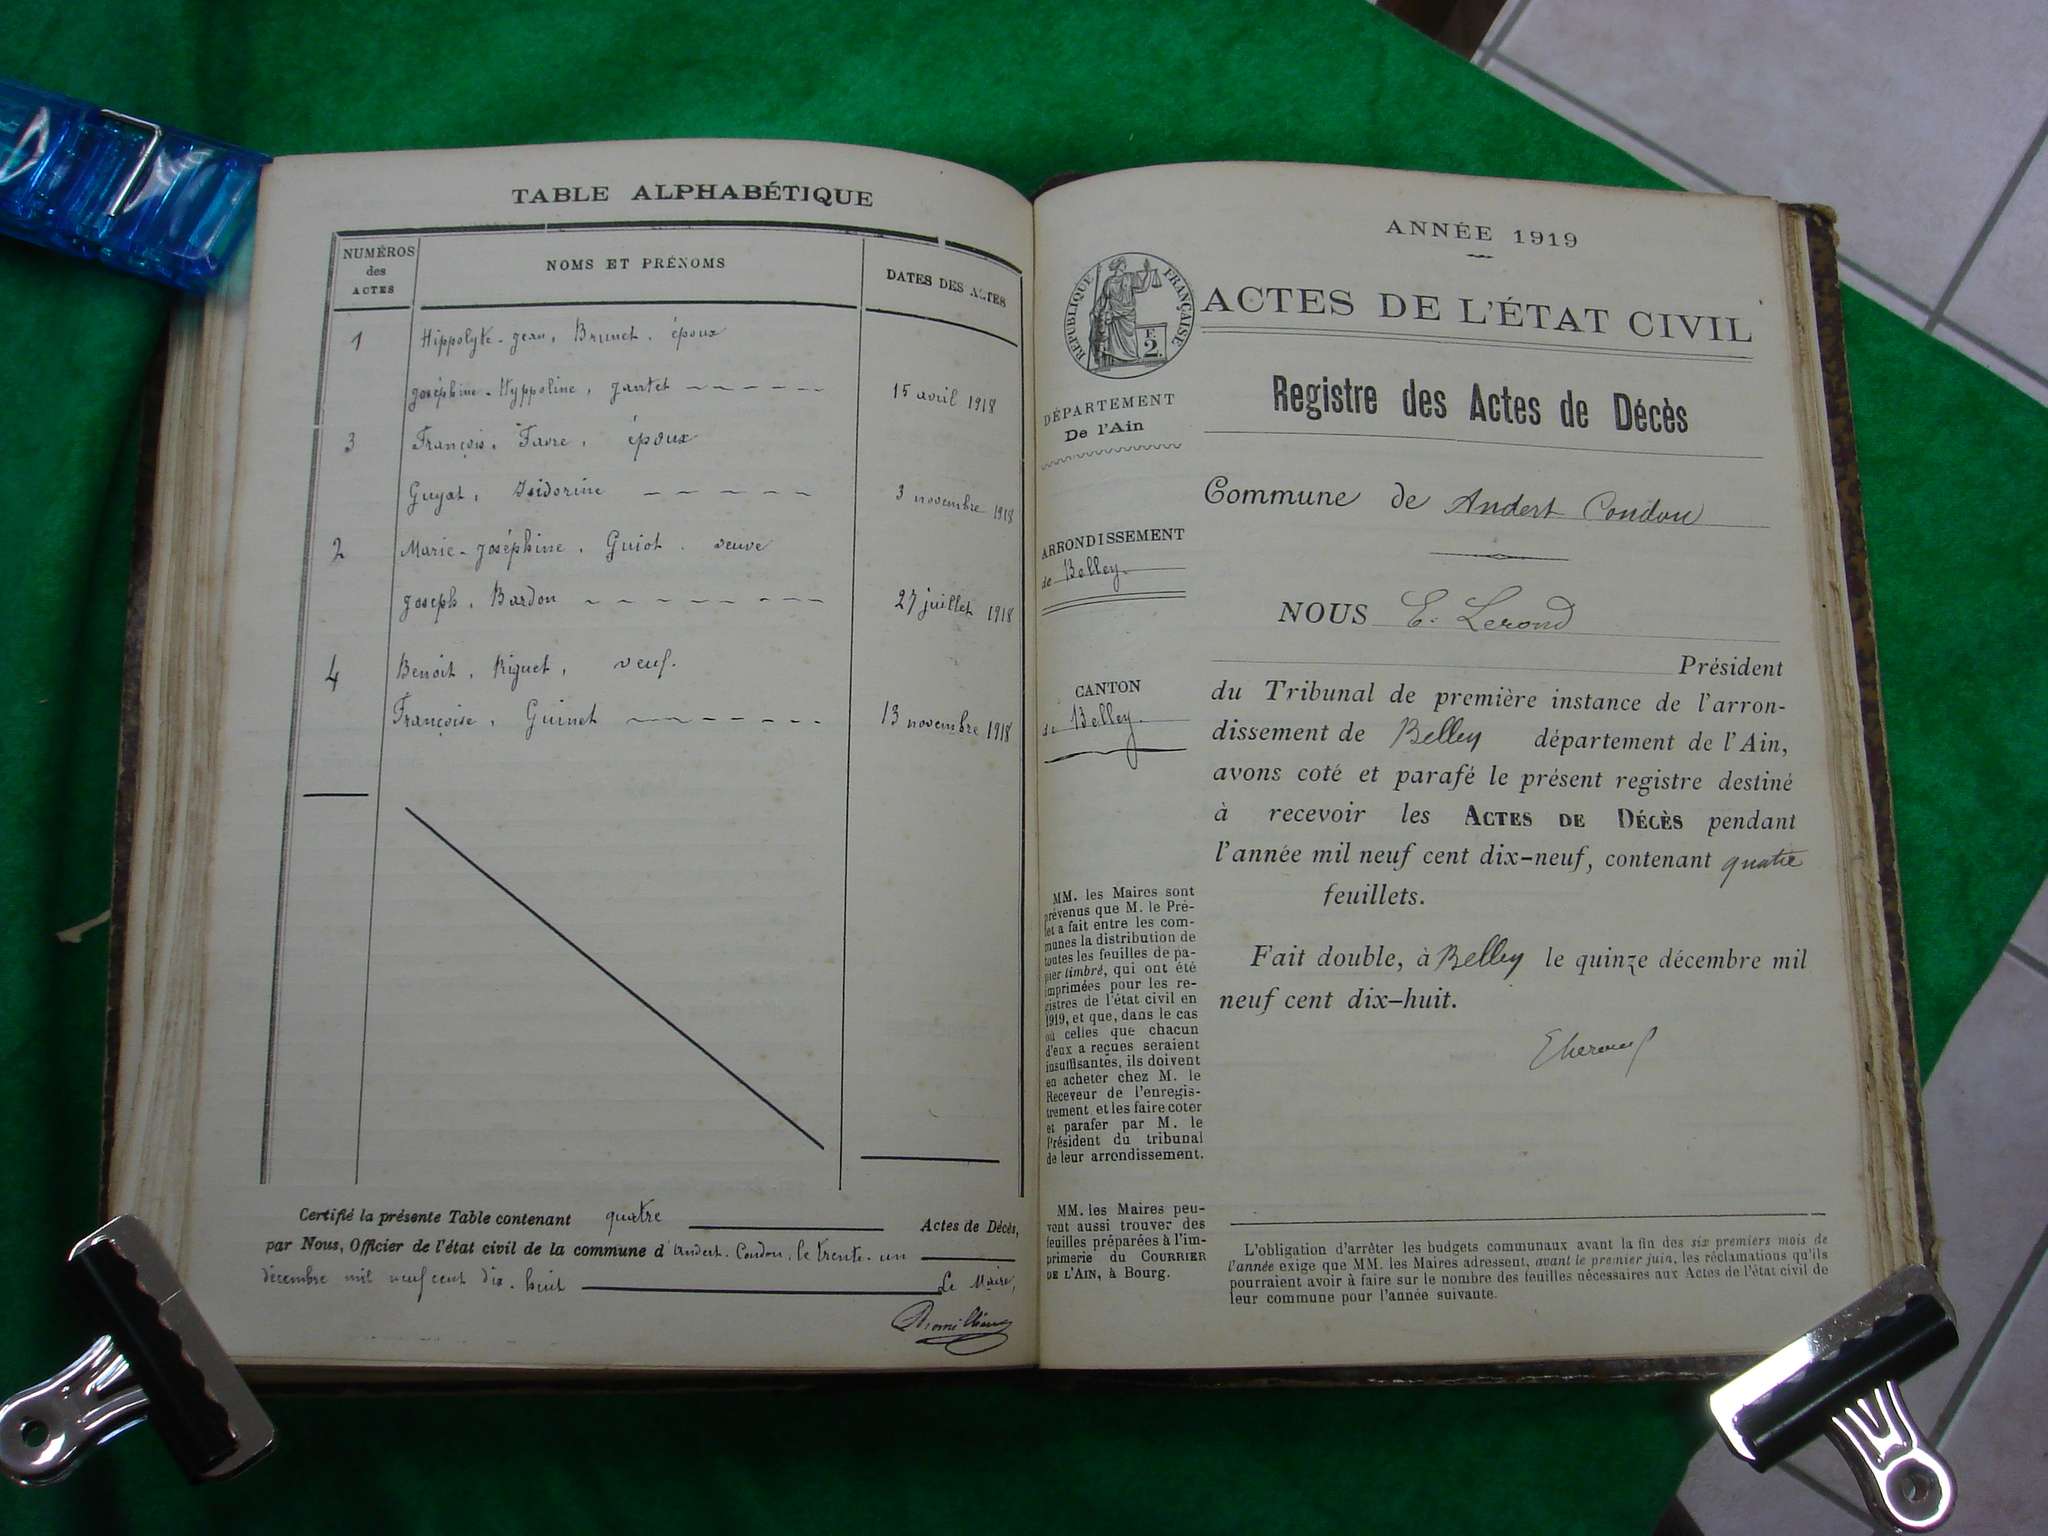 TABLE ALPHABÉTIQUE
NUMÉROS
des
ACTES
NOMS ET PRÉNOMS
DATES DES ACTES
1 Hippolyte-jean, Brunet. époux
joséphine-Hyppoline, jantet 15 avril 1918
3 François, Favre, époux
Guyot, Isidorine 3 novembre 1918
2 Marie-joséphine, Guiot. veuve
joseph, Bardon 27 juillet 1918
4 Benoit, Riguet, veuf.
Françoise, Guinet 13 novembre 1918
Certifié la présente Table contenant quatre Actes de Décès,
par Nous, Officier de l'état civil de la commune d'Andert-Condon, le trente-un
décembre mil neuf cent dix-huit Le Maire,
ANNÉE 1919
RÉPUBLIQUE FRANÇAISE
F.
2.
ACTES DE L'ÉTAT CIVIL
Registre des Actes de Décès
DÉPARTEMENT
De l'Ain
ARRONDISSEMENT
de Belley
CANTON
de Belley
MM. les Maires sont
prévenus que M. le Pré-
fet a fait entre les com-
munes la distribution de
toutes les feuilles de pa-
pier timbré, qui ont été
imprimées pour les re-
gistres de l'état civil en
1919, et que, dans le cas
où celles que chacun
d'eux a reçues seraient
insuffisantes, ils doivent
en acheter chez M. le
Receveur de l'enregis-
trement et les faire coter
et parafer par M. le
Président du tribunal
de leur arrondissement.
MM. les Maires peu-
vent aussi trouver des
feuilles préparées à l'im-
primerie du COURRIER
DE L'AIN, à Bourg.
Commune de Andert Condon
NOUS E. Lerond
Président
du Tribunal de première instance de l'arron-
dissement de Belley département de l'Ain,
avons coté et parafé le présent registre destiné
à recevoir les ACTES DE DÉCÈS pendant
l'année mil neuf cent dix-neuf, contenant quatre
feuillets.
Fait double, à Belley le quinze décembre mil
neuf cent dix-huit.
L'obligation d'arrêter les budgets communaux avant la fin des six premiers mois de
l'année exige que MM. les Maires adressent, avant le premier juin, les réclamations qu'ils
pourraient avoir à faire sur le nombre des feuilles nécessaires aux Actes de l'état civil de
leur commune pour l'année suivante.